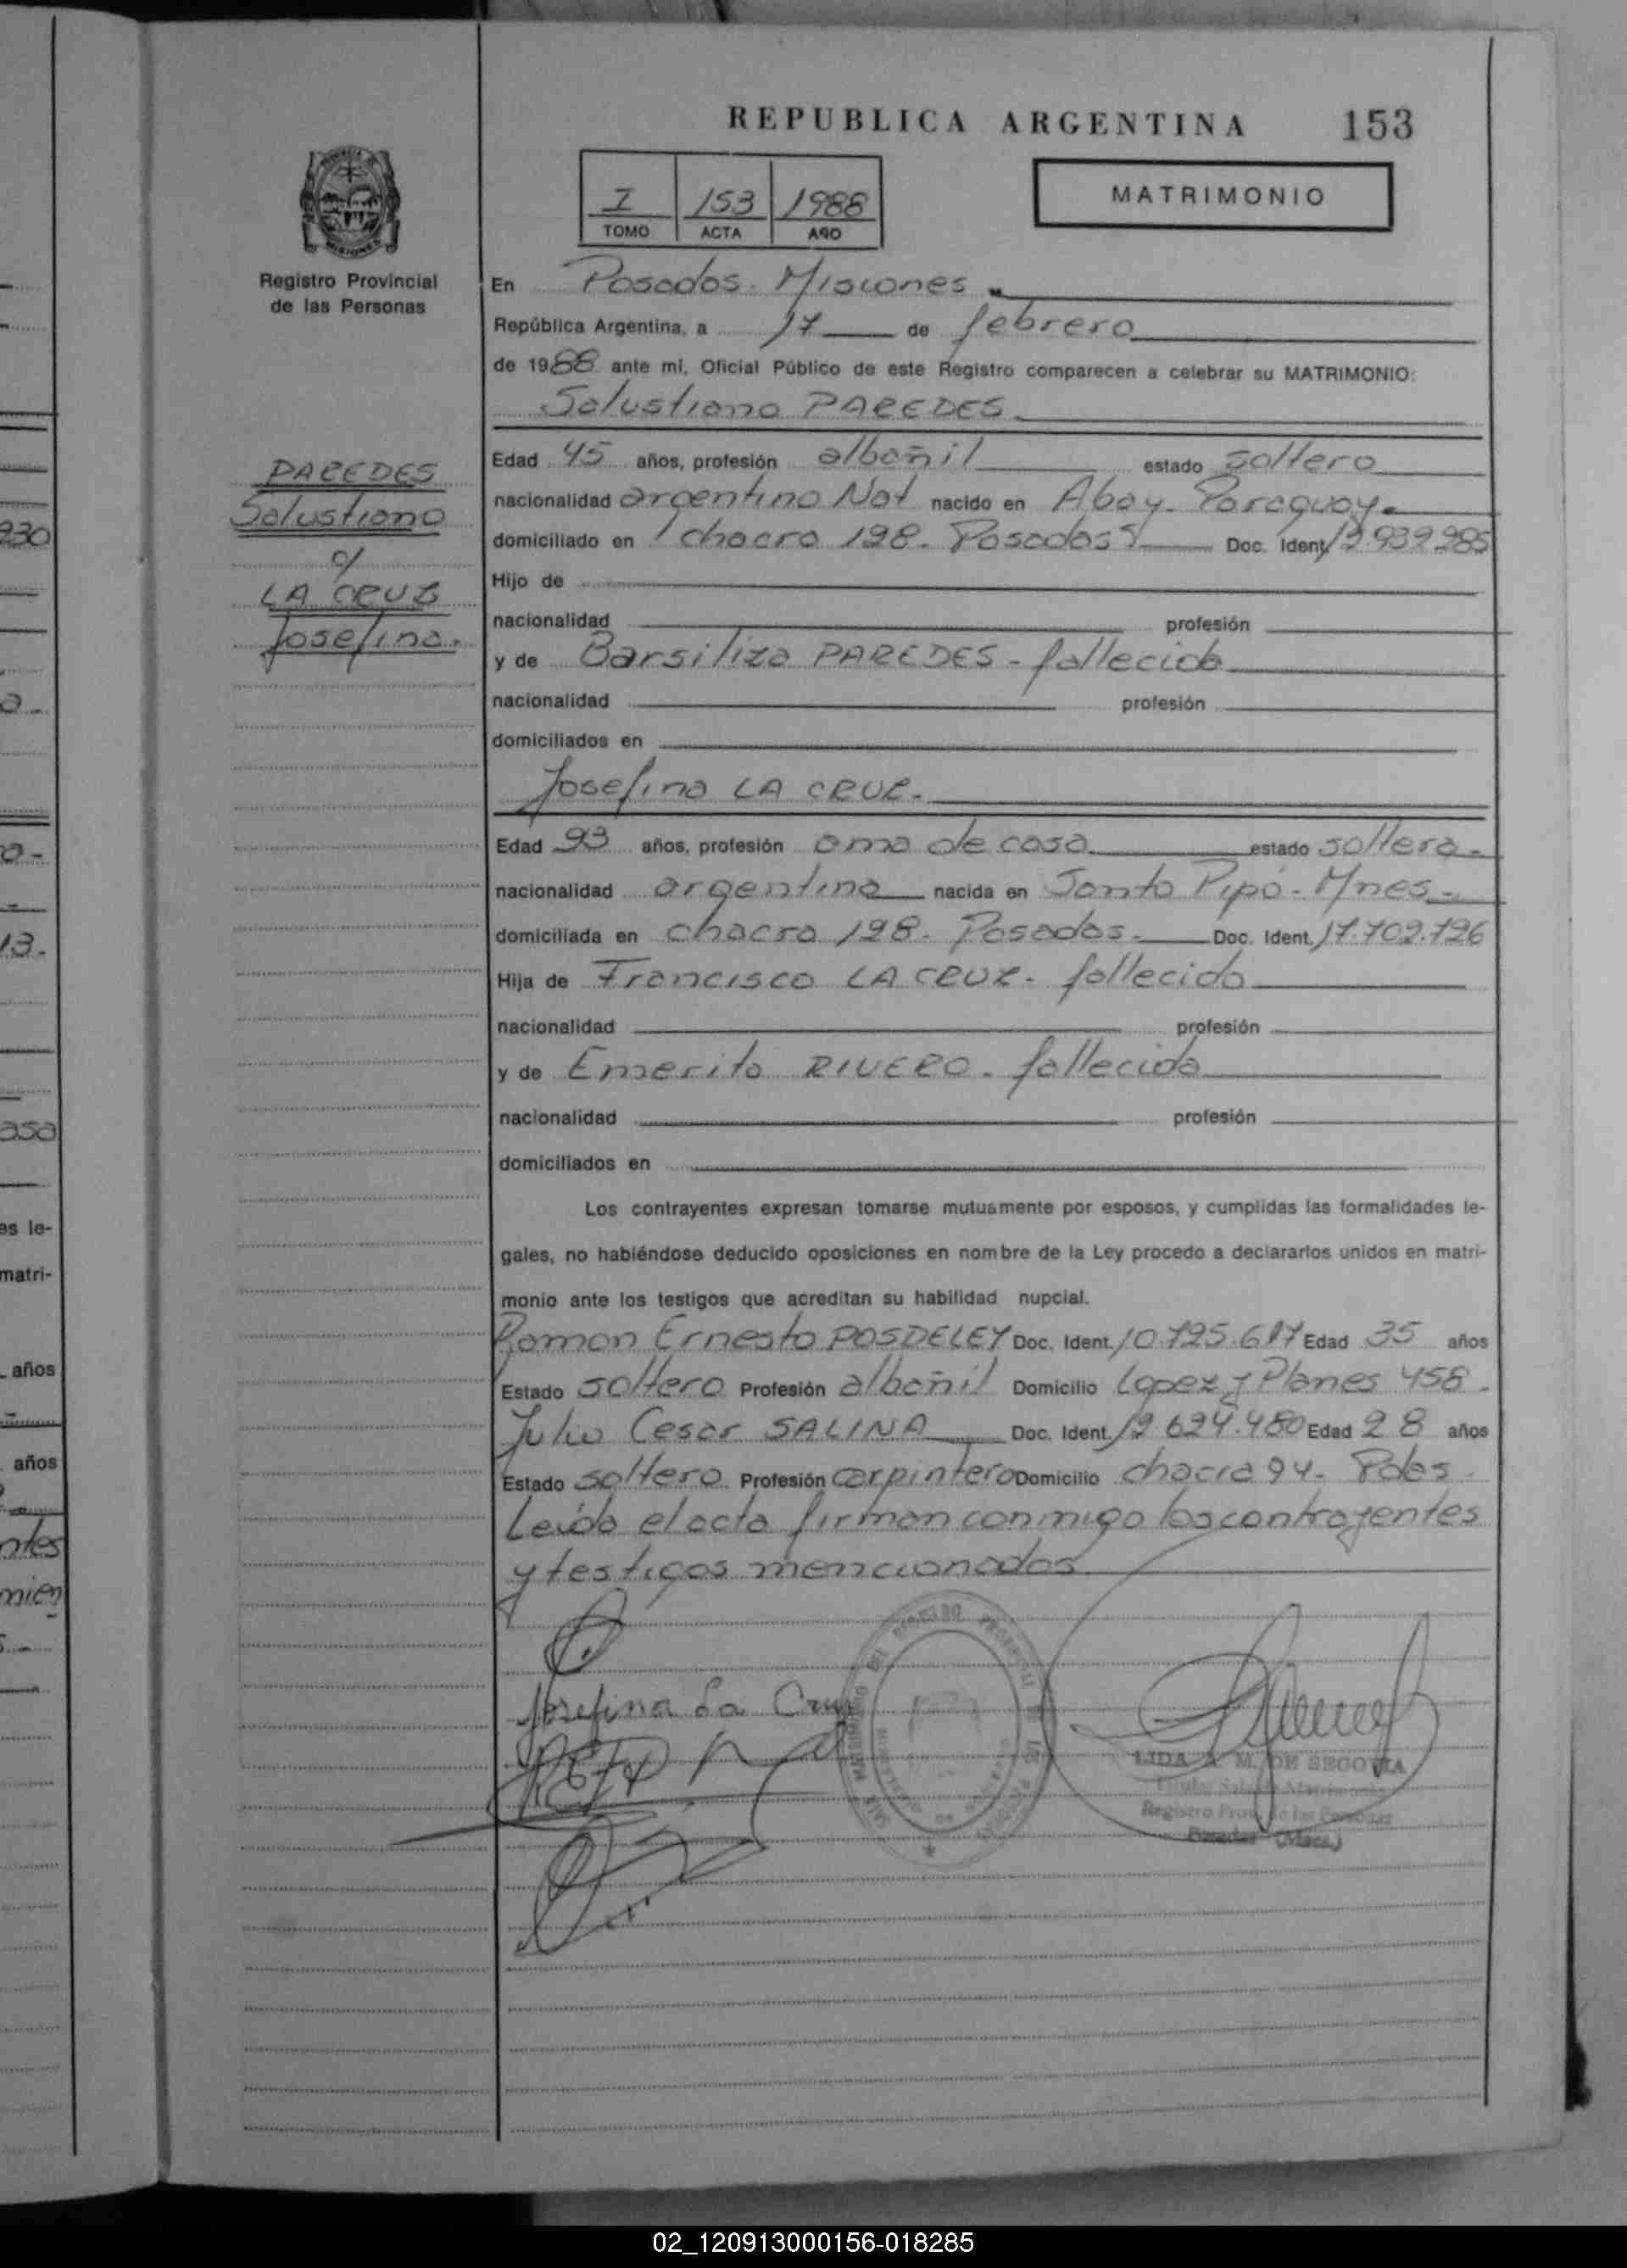 REPUBLICA ARGENTINA 153
MATRIMONIO
I 153 1988
TOMO ACTA AÑO
Registro Provincial
de las Personas
En Posadas. Misiones
República Argentina, a 17 de febrero
de 1988 ante mi, Oficial Público de este Registro comparecen a celebrar su MATRIMONIO:
Salustiano PAREDES
Edad 45 años, profesión albañil estado soltero
nacionalidad argentino Nat nacido en Abay. Paraguay.
domiciliado en chacra 198. Posadas Doc. Ident. 12.939.985
Hijo de
nacionalidad profesión
y de Barsiliza PAREDES - fallecida
nacionalidad profesión
domiciliados en
PAREDES
Salustiano
c/
LA CRUZ
Josefina.
Josefina LA CRUZ.
Edad 93 años, profesión ama de casa estado soltera -
nacionalidad argentina nacida en Santo Pipó - Mnes -
domiciliada en chacra 198. Posadas. Doc. Ident. 17.702.726
Hija de Francisco LA CRUZ. fallecido
nacionalidad profesión
y de Emerita RIVERO. fallecida
nacionalidad profesión
domiciliados en
Los contrayentes expresan tomarse mutuamente por esposos, y cumplidas las formalidades le-
gales, no habiéndose deducido oposiciones en nombre de la Ley procedo a declararlos unidos en matri-
monio ante los testigos que acreditan su habilidad nupcial.
Ramon Ernesto POSDELEY Doc. Ident. 10.795.617 Edad 35 años
Estado soltero Profesión albañil Domicilio Lopez y Planes 458.
Julio Cesar SALINA Doc. Ident. 12.624.480 Edad 28 años
Estado soltero Profesión carpintero Domicilio chacra 94. Pdas.
Leida el acta firman conmigo los contrayentes
y testigos mencionados
Josefina La Cruz
LIDA M. DE SEGOVIA
Titular Sala de Matrimonios
Registro Prov. de las Personas
Posadas (Mnes.)
930
a -
13.
asa
es le-
matri-
años
años
ntes
mien
02_120913000156-018285